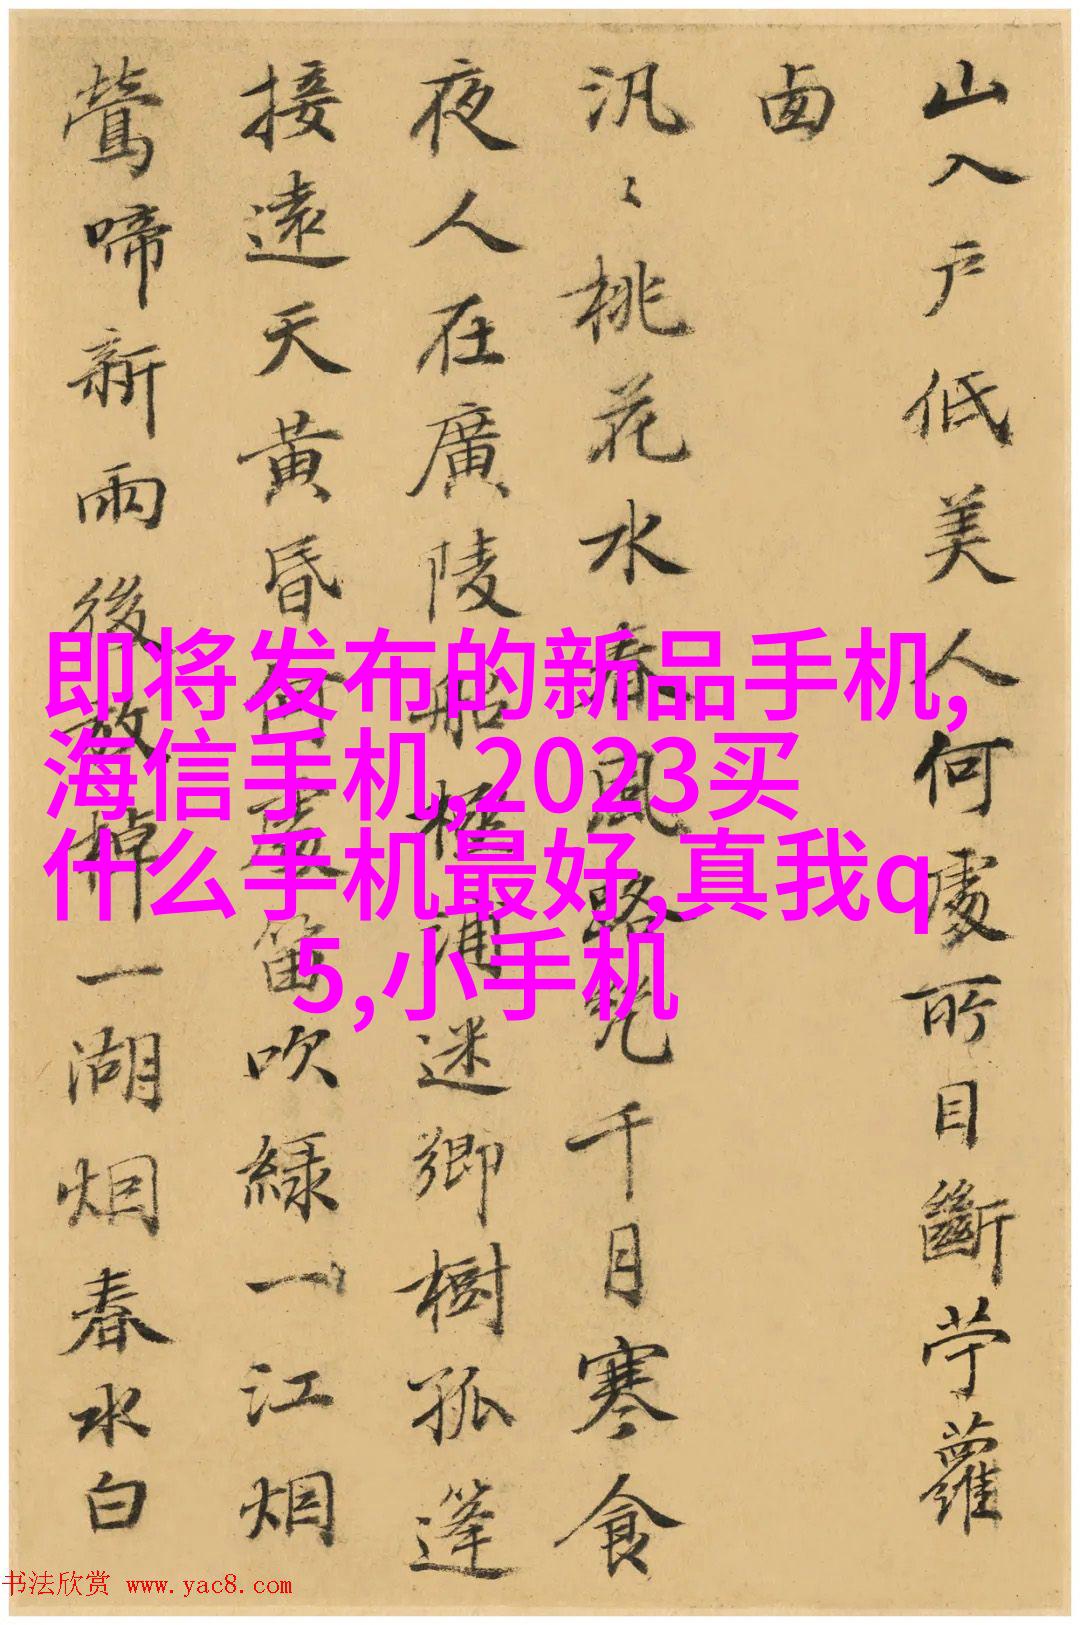 山入戶低美人何處所目斷苧蘿
西
汎〻桃花水春風路幾千月寒食
夜人在廣陵船極浦迷鄉樹孤篷
接遠天黃昏何處笛吹綠一江烟
鶯啼新雨後放棹一湖烟春水白
即将发布的新品手机,
海信手机,2023买
什么手机最好,真我q
5,小手机
书法欣赏 www.yac8.com